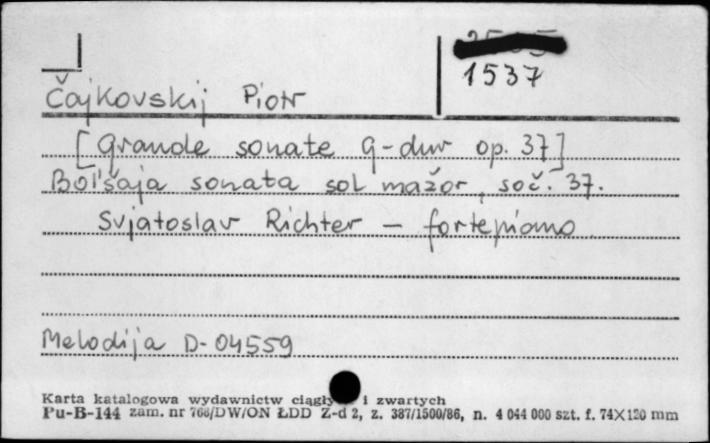 1537
Čajkovskij Piotr
[Grande sonate G-dur op. 37]
Bol'šaja sonata sol mažor, soč. 37.
Svjatoslav Richter – fortepiano
Melodija D-04559
Karta katalogowa wydawnictw i zwartych
Pu-B-144 zam. nr 768/DW/ON ŁDD Z-d 2, z. 387/1500/86, n. 4 044 000 szt. f. 74X120 mm